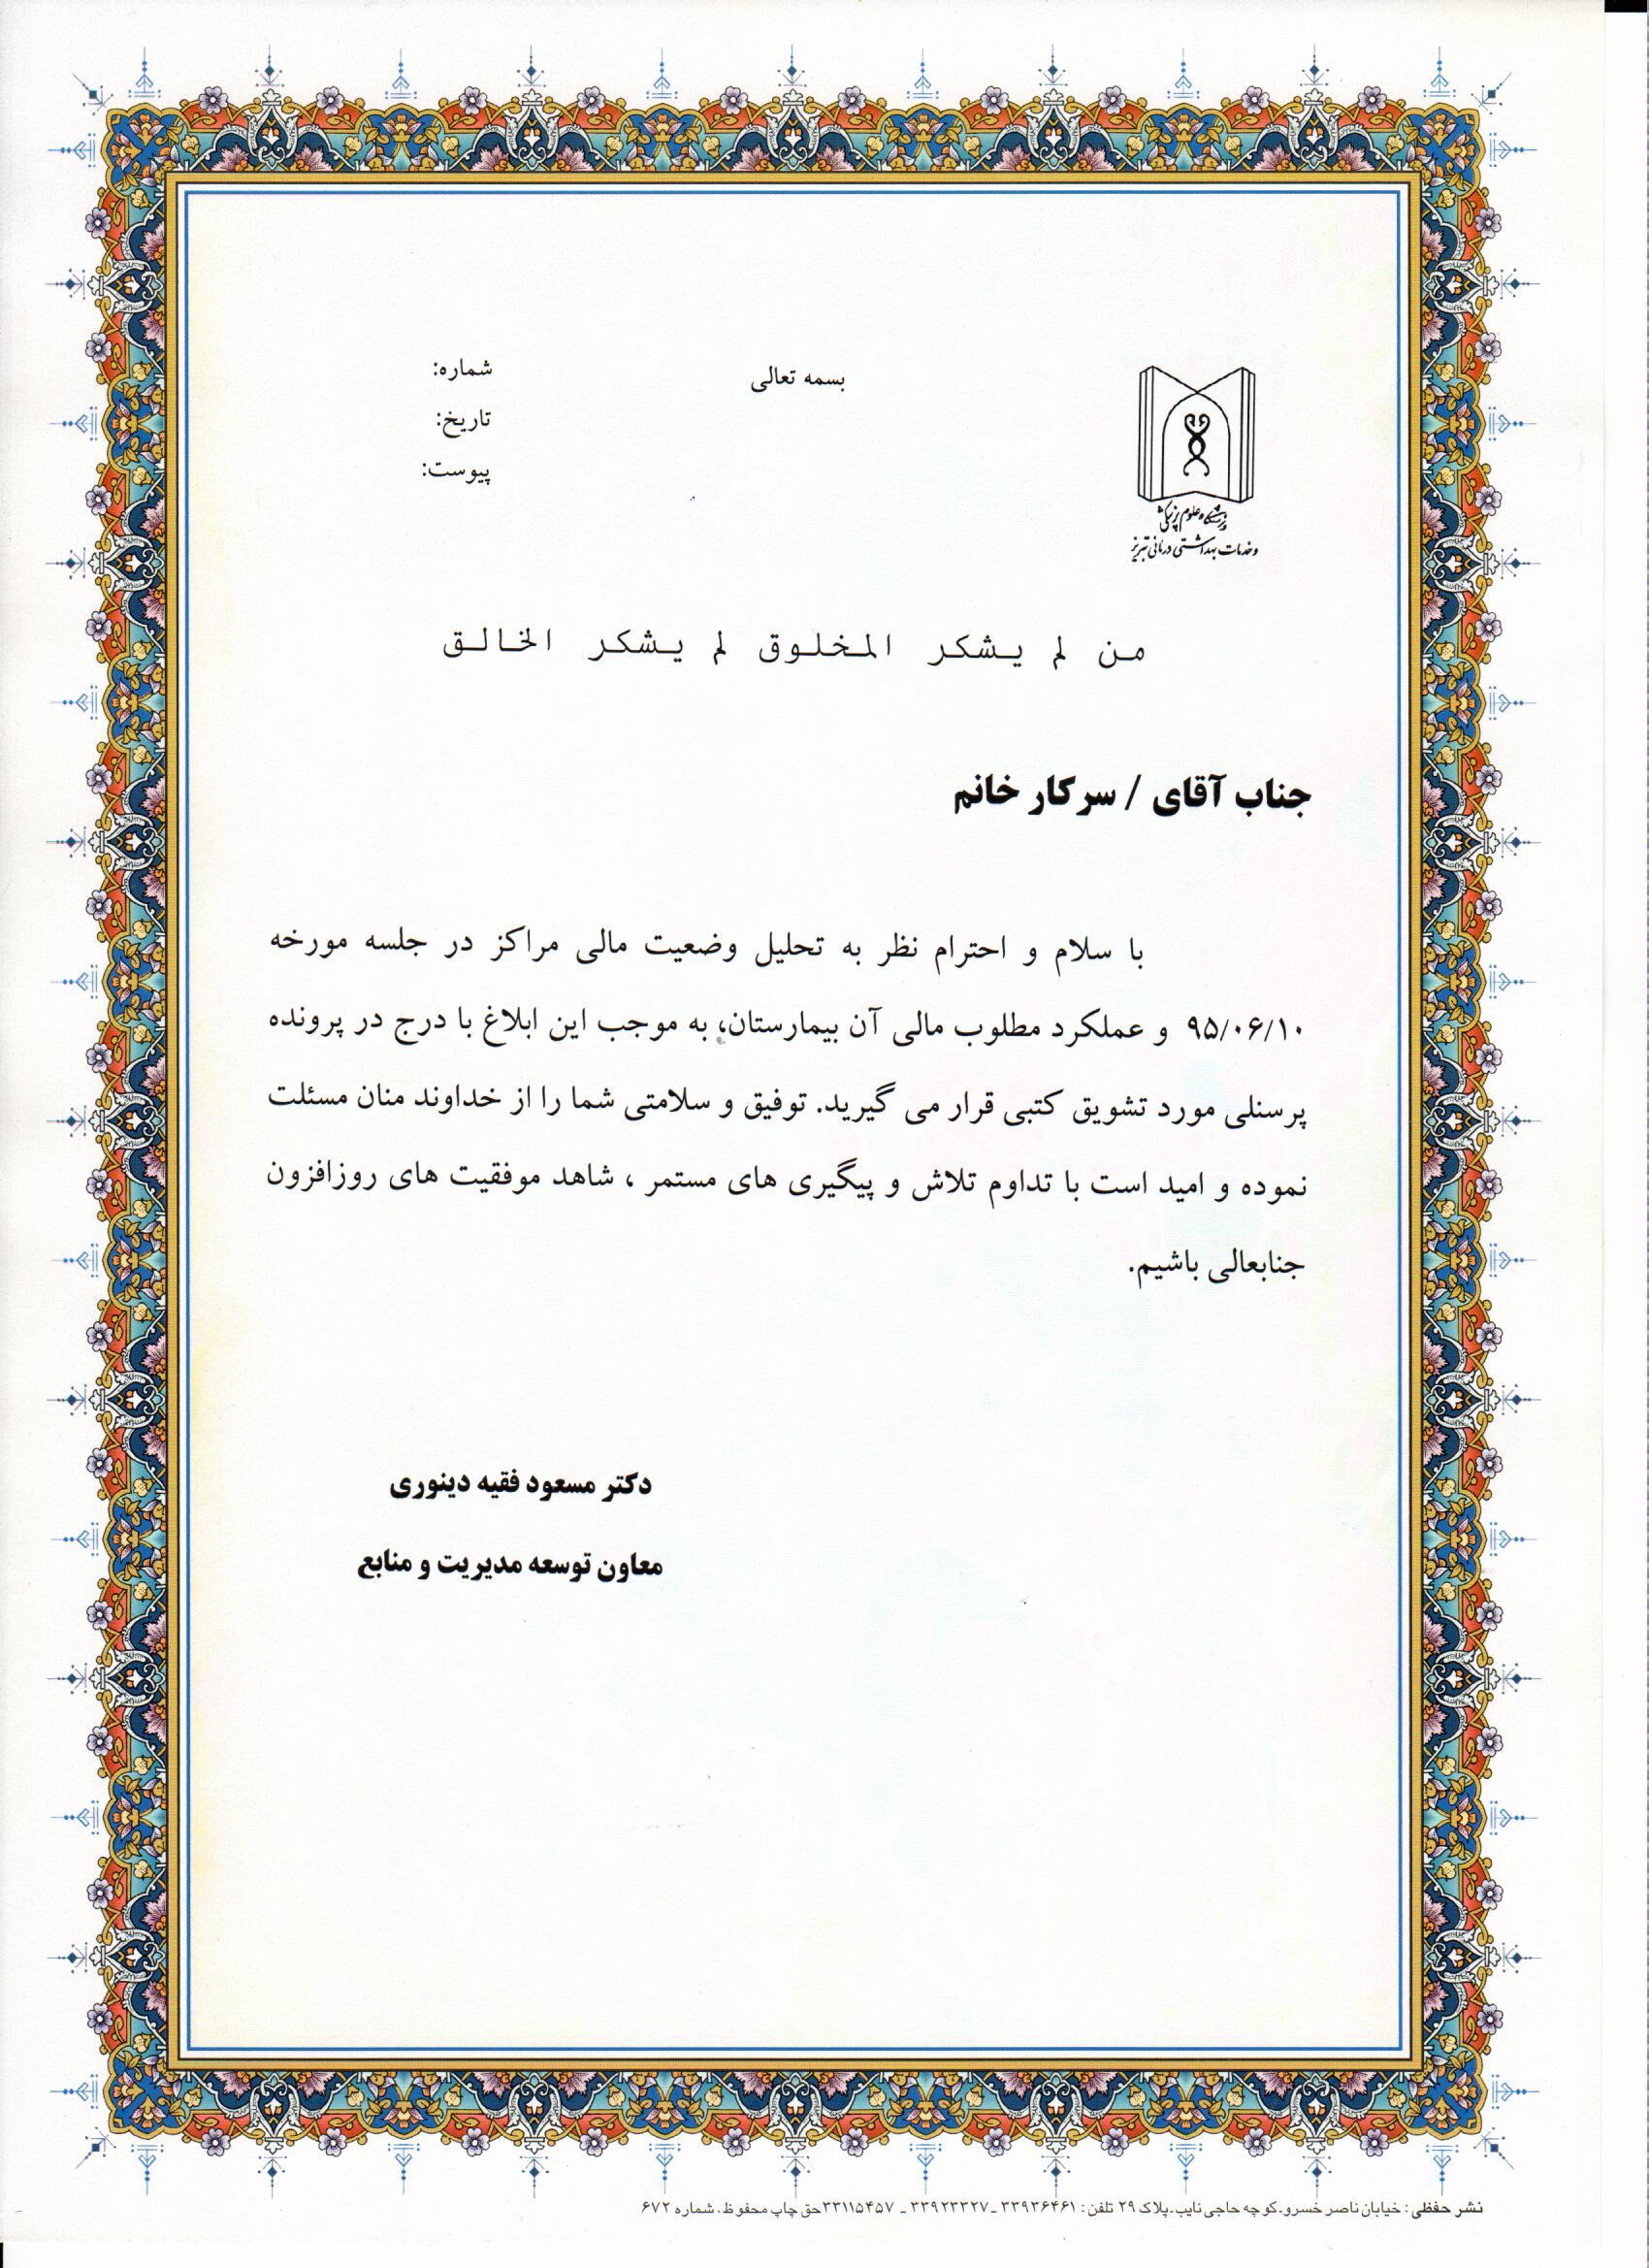 بسمه تعالی
شماره:
تاریخ:
پیوست:
دانشگاه علوم پزشکی
وخدمات بهداشتی درمانی تبریز
من لم یشکر المخلوق لم یشکر الخالق
جناب آقای / سرکار خانم
با سلام و احترام نظر به تحلیل وضعیت مالی مراکز در جلسه مورخه
۹۵/۰۶/۱۰ و عملکرد مطلوب مالی آن بیمارستان، به موجب این ابلاغ با درج در پرونده
پرسنلی مورد تشویق کتبی قرار می گیرید. توفیق و سلامتی شما را از خداوند منان مسئلت
نموده و امید است با تداوم تلاش و پیگیری های مستمر ، شاهد موفقیت های روزافزون
جنابعالی باشیم.
دکتر مسعود فقیه دینوری
معاون توسعه مدیریت و منابع
نشر حفظی : خیابان ناصر خسرو.کوچه حاجی نایب.پلاک ۲۹ تلفن : ۳۳۹۳۶۴۶۱ ـ ۳۳۹۲۳۳۲۷ ـ ۳۳۱۱۵۴۵۷حق چاپ محفوظ. شماره ۶۷۲